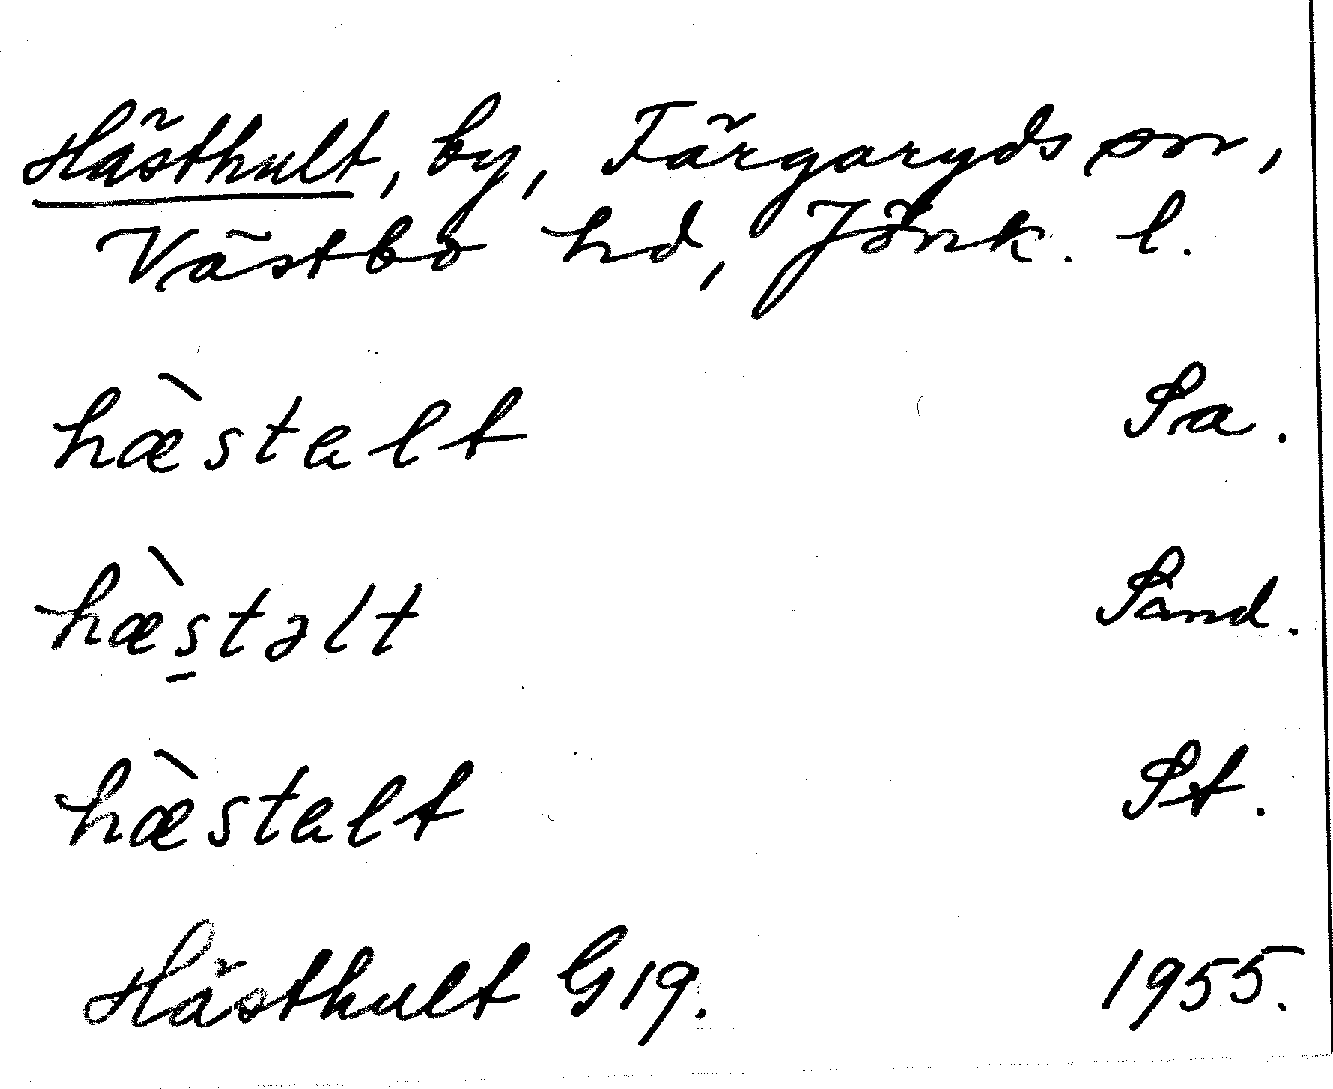 Hästhult, by, Färgaryds sn,
Västbo hd, Jönk. l.
hæ̀stalt Sa.
hæ̀s̱təlt Sand.
hæ̀stalt St.
Hästhult G19. 1955.